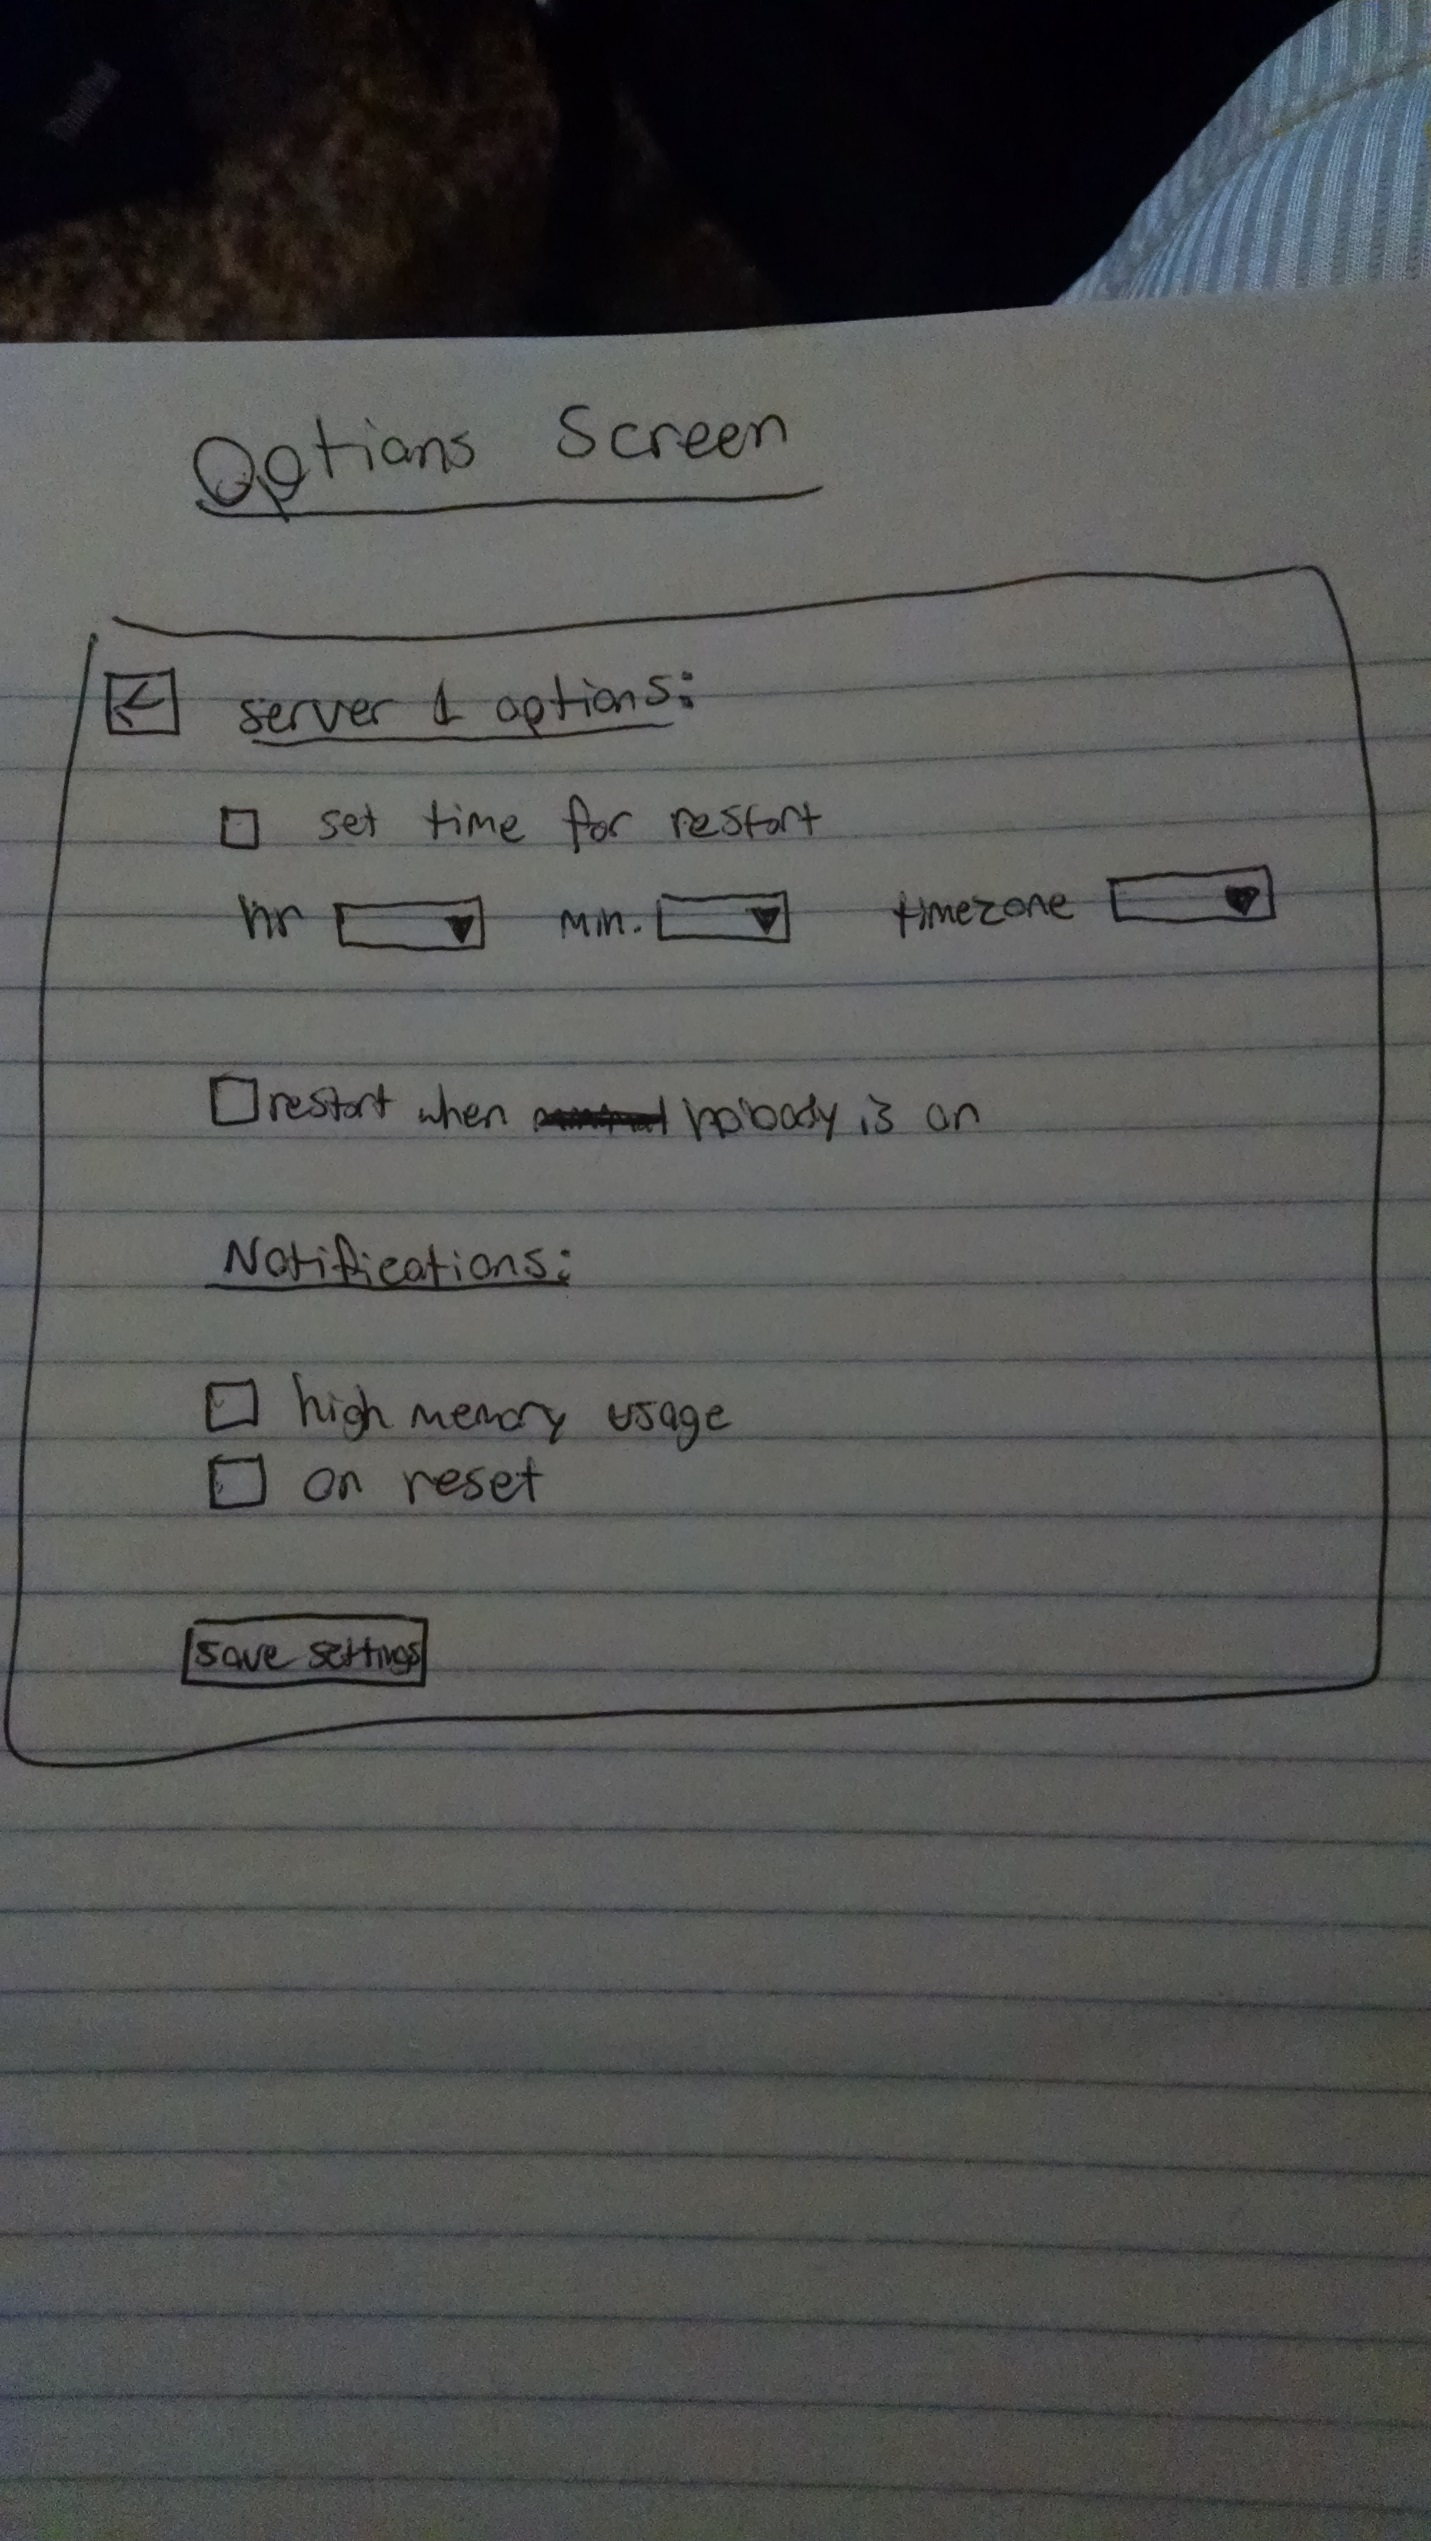 Options Screen
server 1 options:
set time for restart
hr min. timezone
restart when nobody is on
Notifications:
high memory usage
on reset
save settings